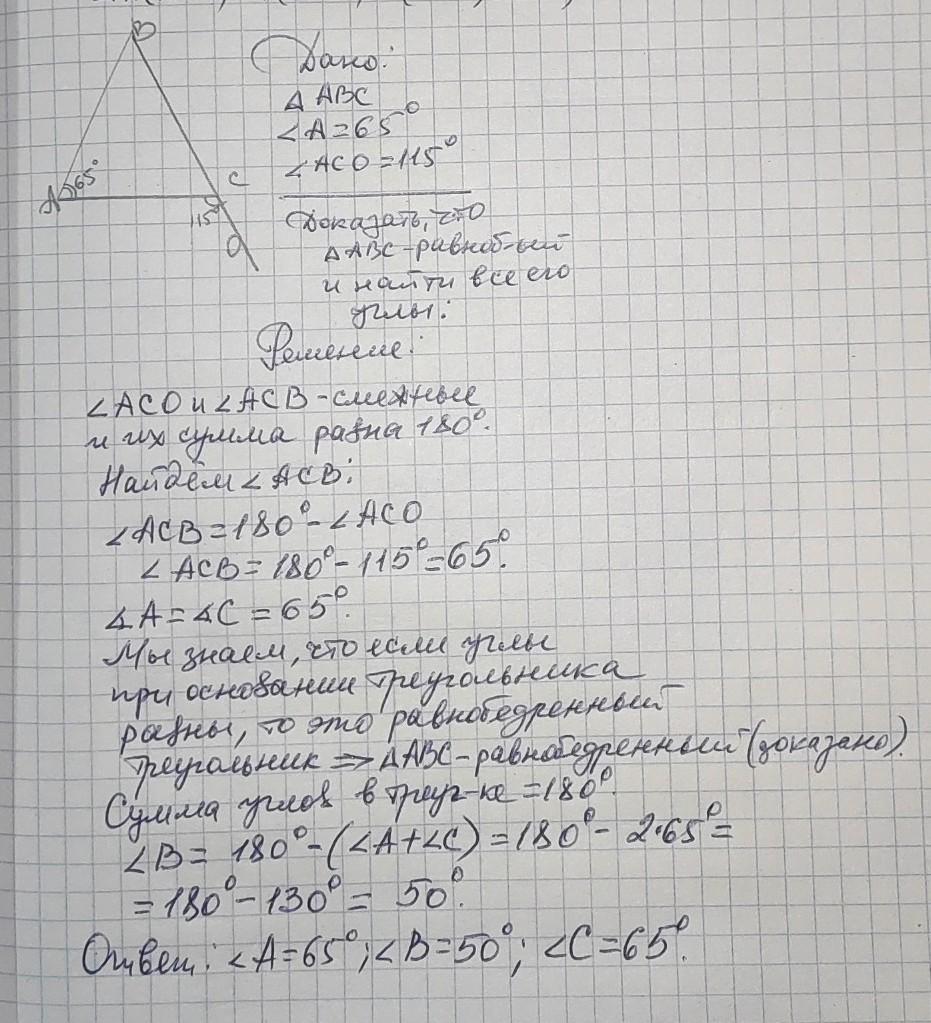 B
65°
A
C
115°
O
Дано:
Δ ABC
∠A=65°
∠ACO=115°
Доказать, что
ΔABC-равноб-ый
и найти все его
углы:
Решение:
∠ACO и ∠ACB-смежные
и их сумма равна 180°.
Найдём ∠ACB:
∠ACB=180°-∠ACO
∠ACB=180°-115°=65°.
∡A=∡C=65°.
Мы знаем, что если углы
при основании треугольника
равны, то это равнобедренный
треугольник ⇒ ΔABC-равнобедренный (доказано).
Сумма углов в треуг-ке =180°.
∠B= 180°-(∠A+∠C)=180°- 2·65°=
=180°-130°= 50°.
Ответ: ∠A=65°; ∠B=50°; ∠C=65°.